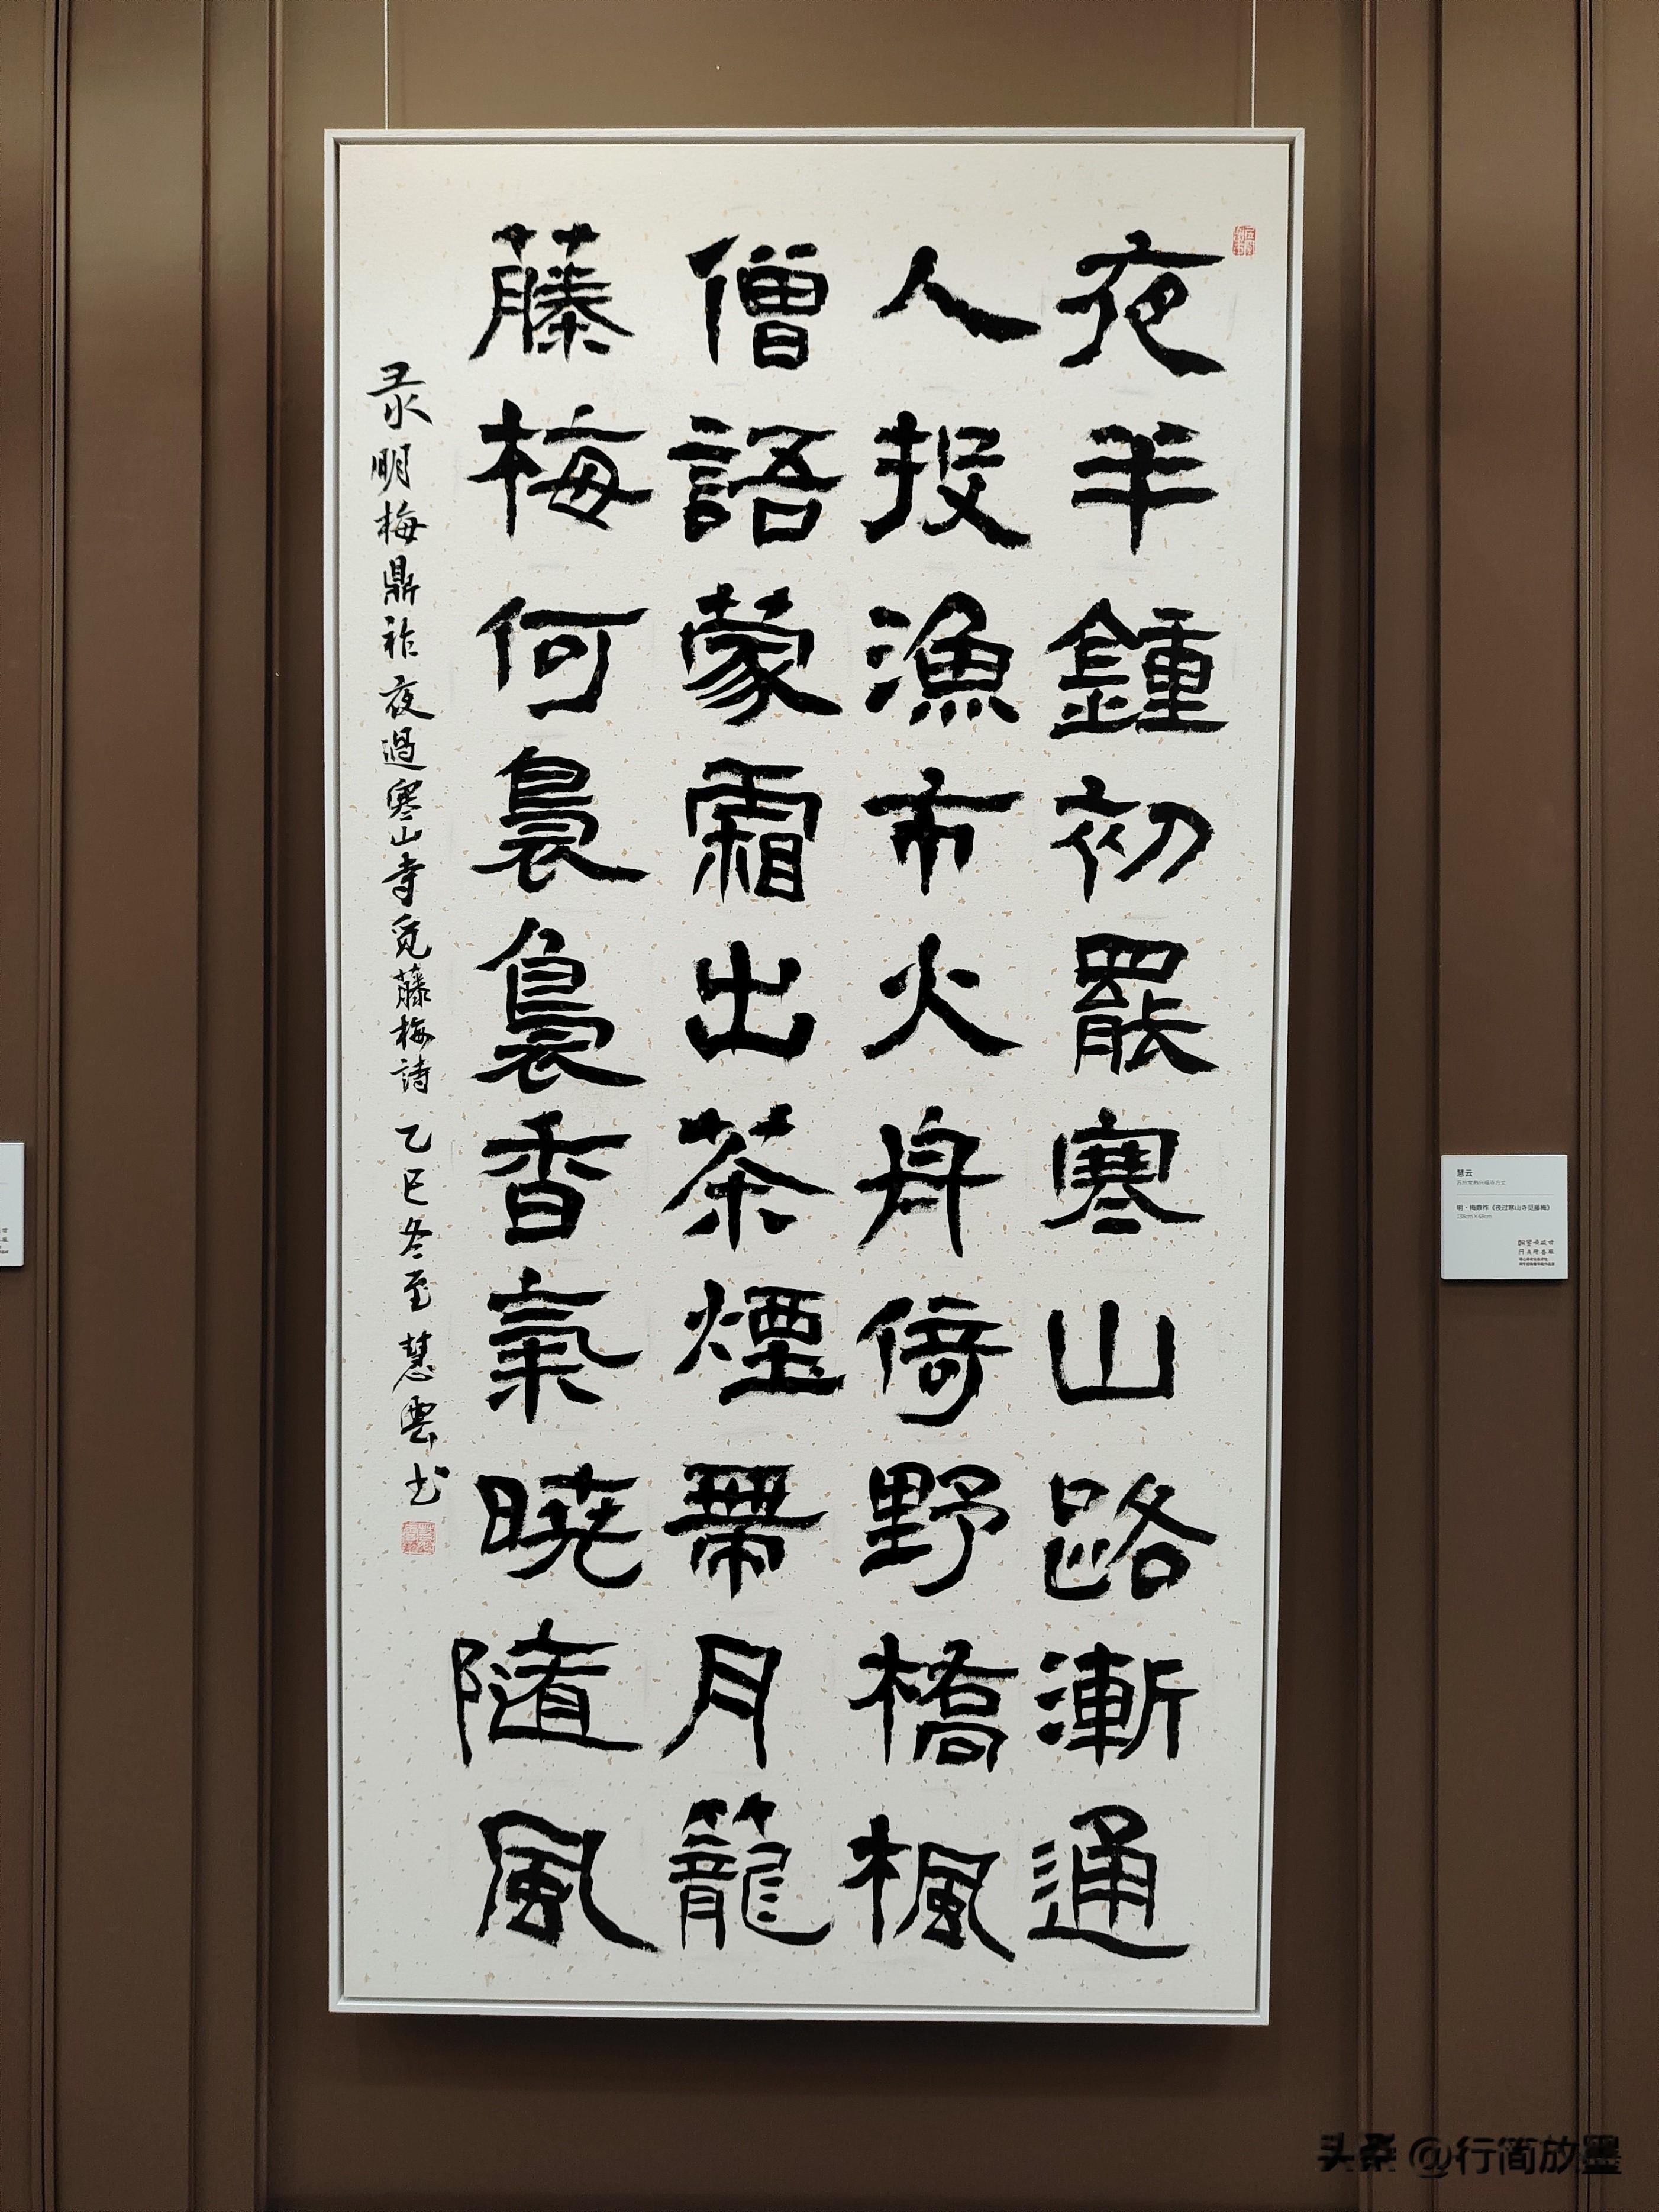 夜半鐘初罷寒山路漸通
人投漁市火舟倚野橋楓
僧語蒙霜出茶煙帶月籠
藤梅何裊裊香氣曉隨風
录明梅鼎祚夜過寒山寺覓藤梅詩 乙巳冬至 慧雲书
慧云
苏州常熟兴福寺方丈
明·梅鼎祚《夜过寒山寺觅藤梅》
138cm×68cm
头条 @行简放墨